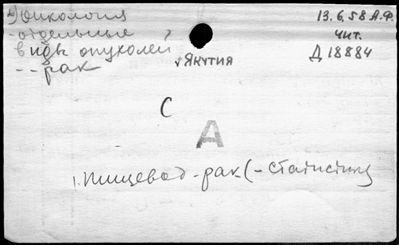 Онкология
- отдельные
виды опухолей
-- рак
√ Якутия
13.6.58 А.Ф.
чит.
Д 18884
С
А
1. пищевод - рак (- статистика